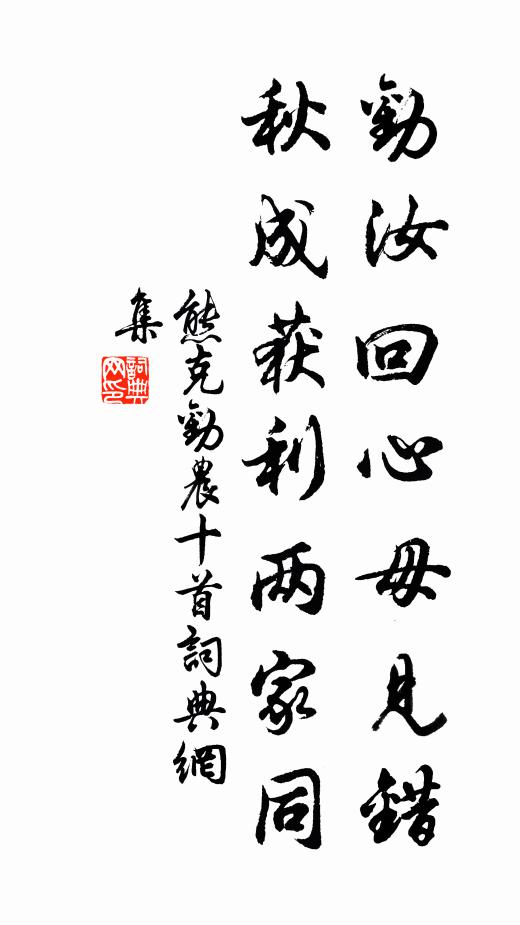 勸汝回心毋見錯
秋成获利两家同
熊克勸農十首詞典網
集
詞典网印